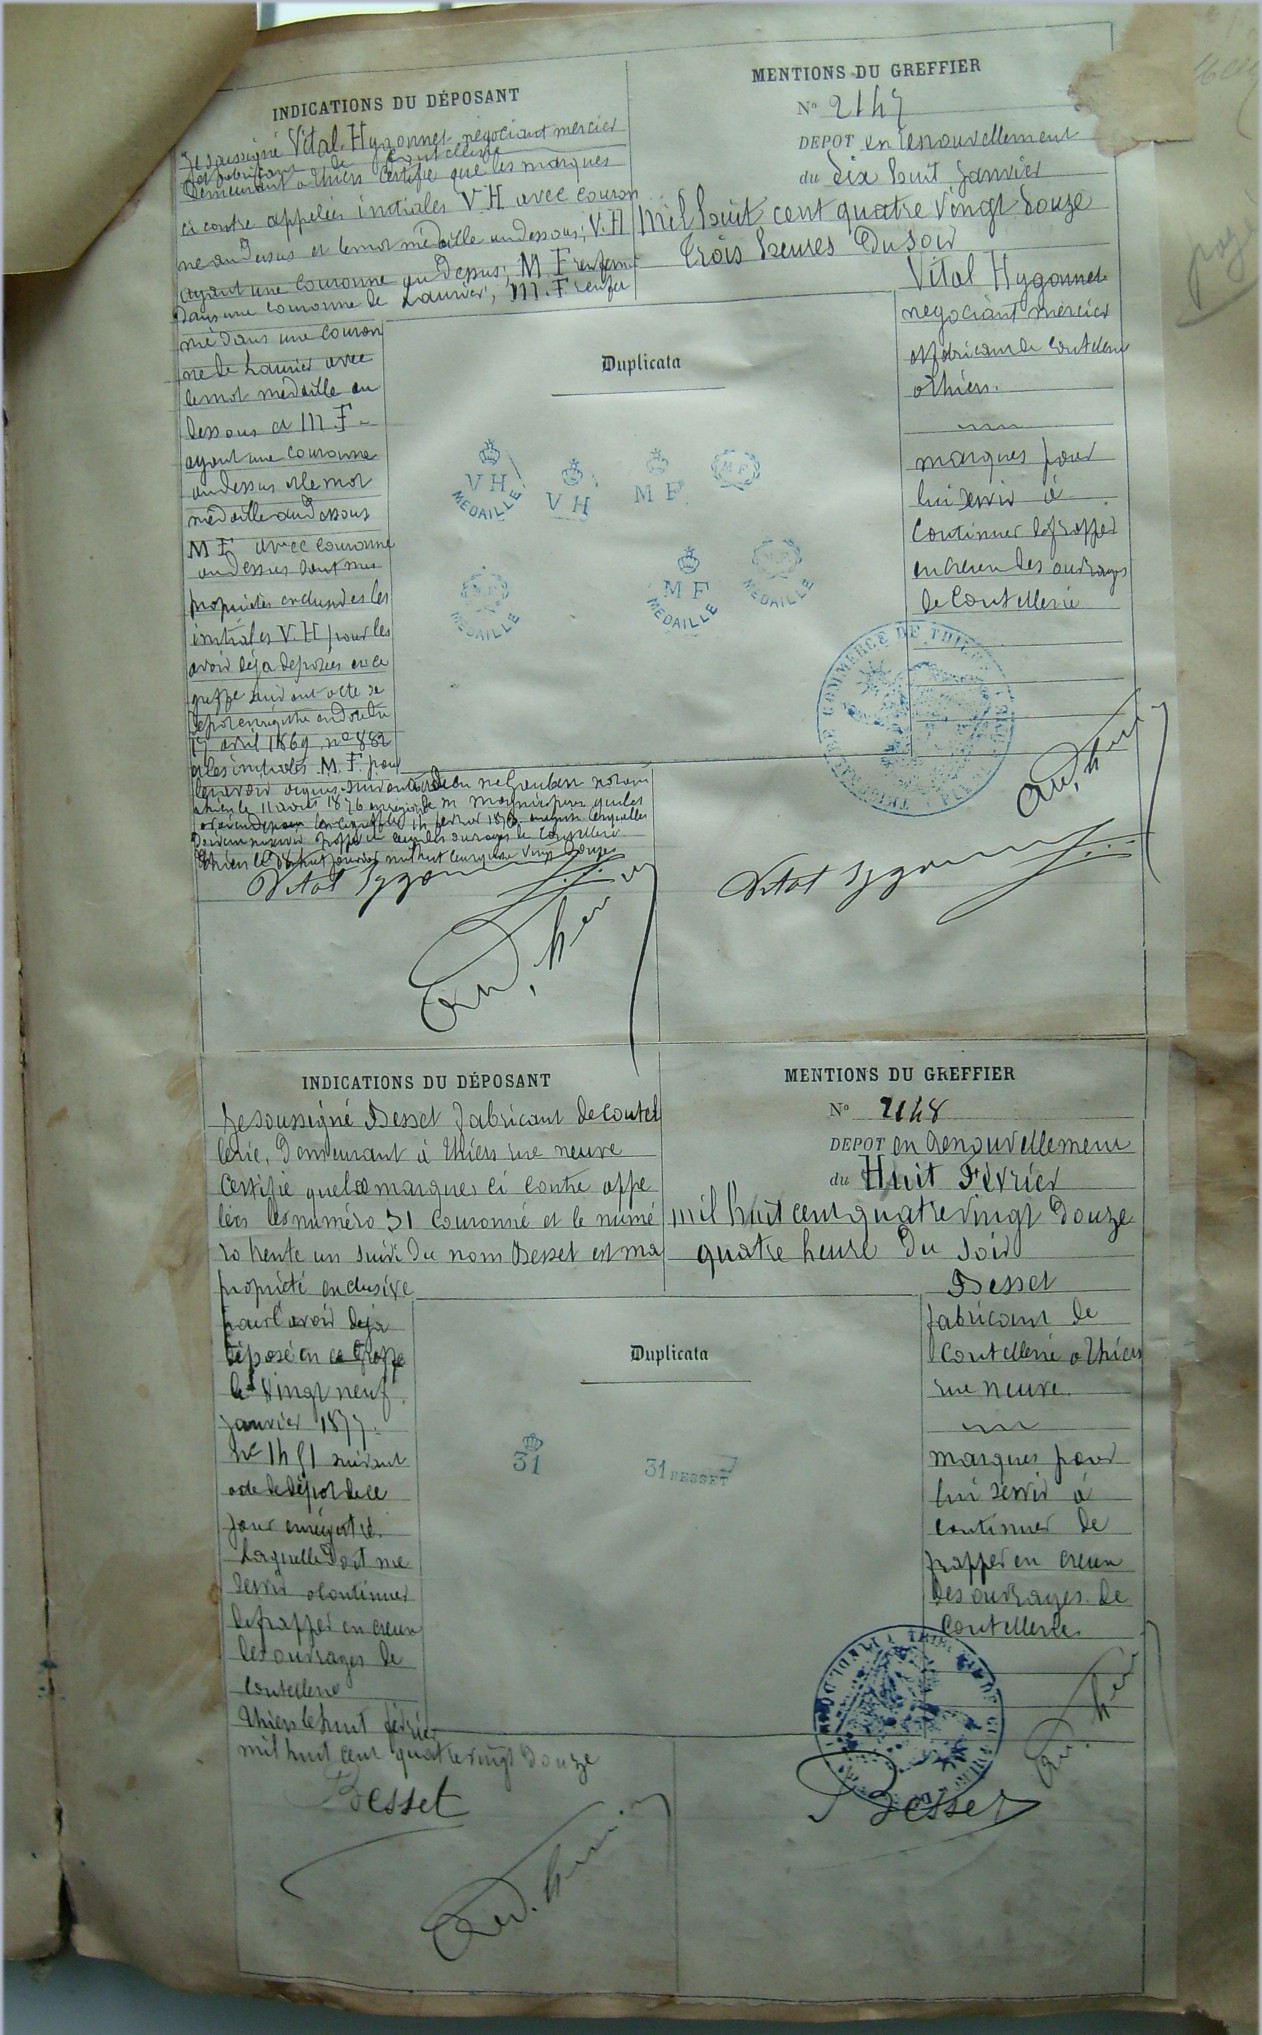 INDICATIONS DU DÉPOSANT
Je soussigné Vital Hygonnet négociant mercier
et fabricant de Coutellerie
Demeurant à Thiers certifie que les marques
ci contre appelées initiales V.H avec couron
ne au dessus et le mot médaille au dessous, V.H
ayant une couronne au dessus; M.F renfermé
dans une couronne de Laurier, M.F renfer
mé dans une couron
ne de Laurier avec
le mot médaille au
dessous et M F
ayant une couronne
au dessus et le mot
médaille au dessous
M F avec couronne
au dessus sont mes
propriétés exclusives les
initiales V.H pour les
avoir déjà déposées en ce
greffe suivant acte de
dépôt enregistré en date du
17 avril 1869 n° 882
et les initiales M.F. pour
les avoir
à Thiers le 11 août 1876
14 février 1876
les ouvrages de Coutellerie
Thiers le dix huit janvier mil huit cent quatre vingt douze
Vital Hygonnet
MENTIONS DU GREFFIER
N° 2147
DEPOT en renouvellement
du dix huit Janvier
Mil huit cent quatre vingt douze
trois heures du soir
Vital Hygonnet
négociant mercier
et fabricant de Coutellerie
à Thiers.
marques pour
lui servir à
Continuer de frapper
en creux les ouvrages
de Coutellerie
Duplicata
V H
MEDAILLE
V H
M F
M F
M F
MEDAILLE
M F
MEDAILLE
M F
MEDAILLE
COMMERCE DE THIERS
Vital Hygonnet
INDICATIONS DU DÉPOSANT
Je soussigné Besset fabricant de coutel
lerie, Demeurant à Thiers rue neuve
Certifie que les marques ci contre appe
lées le numéro 31 Couronné et le numé
ro trente un suivi du nom Besset est ma
propriété exclusive
pour l'avoir déjà
déposé en ce Greffe
le Vingt neuf
janvier 1877
N° 1451 suivant
acte de dépôt de ce
jour enregistré.
Laquelle doit me
servir à continuer
de frapper en creux
les ouvrages de
Coutellerie
Thiers le huit février
mil huit cent quatre vingt douze
Besset
MENTIONS DU GREFFIER
N° 2148
DEPOT en renouvellement
du Huit Février
mil huit cent quatre vingt douze
quatre heure du soir
Besset
fabricant de
Coutellerie à Thiers
rue neuve.
marques pour
lui servir à
continuer de
frapper en creux
des ouvrages de
Coutellerie
Duplicata
31
31 BESSET
Besset